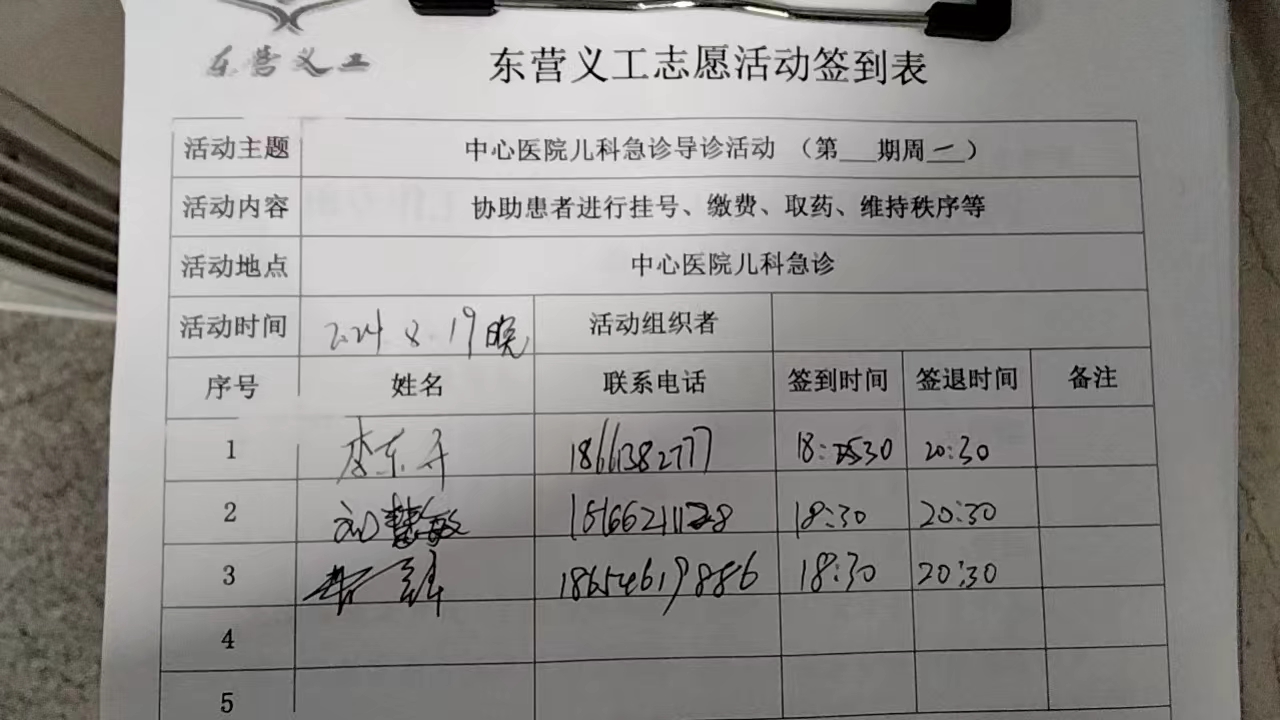 东营义工
东营义工志愿活动签到表
活动主题 中心医院儿科急诊导诊活动 （第___期周一）
活动内容 协助患者进行挂号、缴费、取药、维持秩序等
活动地点 中心医院儿科急诊
活动时间 2024 8.19晚 活动组织者
序号 姓名 联系电话 签到时间 签退时间 备注
1 李东平 18:30 20:30
2 刘慧敏 18:30 20:30
3 18654619886 18:30 20:30
4
5